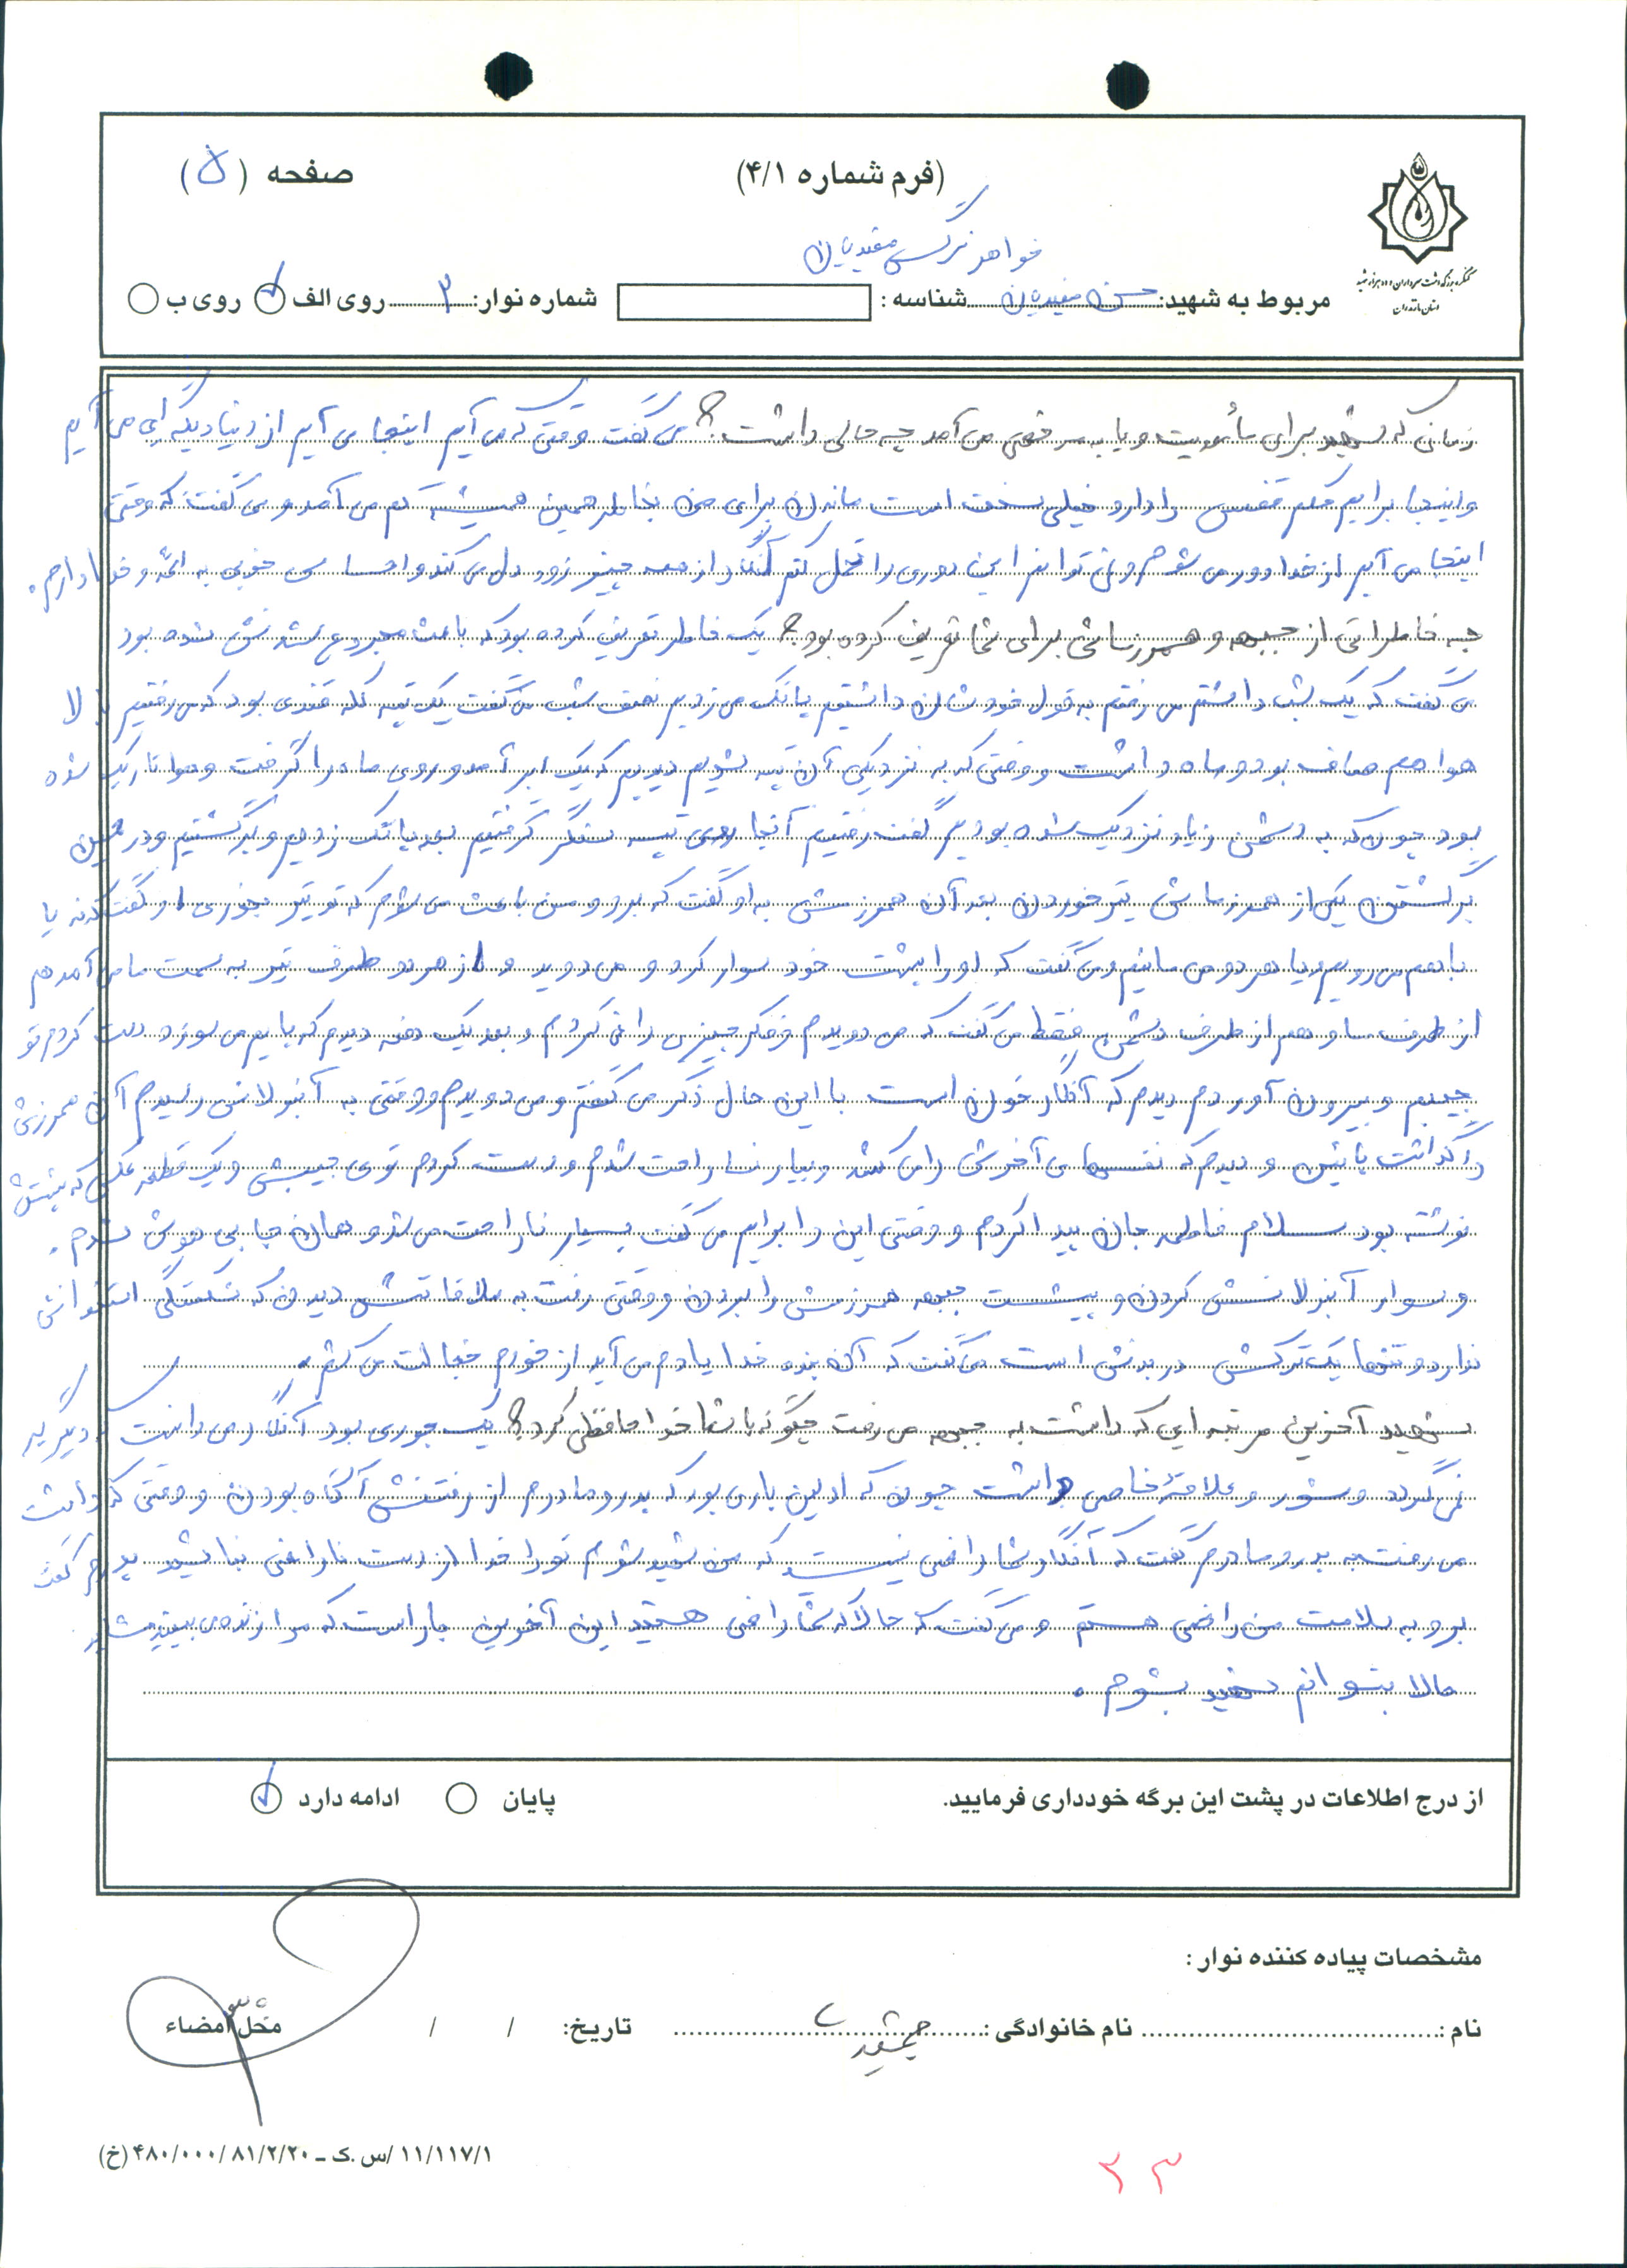 (فرم شماره ۴/۱)
صفحه (۵)
کنگره بزرگداشت سرداران و ده هزار شهید
استان مازندران
خواهر نرگس مفیدیان
مربوط به شهید: حسن مفیدیان شناسه : شماره نوار: ۲ روی الف روی ب
زمانی که شهید برای مأموریت و یا به مرخصی می آمد چه حالی داشت؟ می گفت وقتی که می آیم اینجا می آیم از دنیا دیگه ای می آیم
و اینجا برایم حکم قفس را دارد خیلی سخت است ماندن برای من بخاطر همین همیشه کم می آمد و می گفت که وقتی
اینجا می آیم از خدا دور می شوم و نمی توانم این دوری را تحمل کنم انگار از همه چیز زود دل می کند و احساس خوبی به ائمه و خدا دارم.
چه خاطراتی از جبهه و همرزمانش برای شما تعریف کرده بود؟ یک خاطر تعریف کرده بود که باعث مجروح شدنش شده بود
می گفت که یک شب داشتم می رفتم به قول خودشان داشتیم پاتک می زدیم نصف شب می گفت یک تپه کله قندی بود که می رفتیم بالا
هوا هم صاف بود و ماه داشت و وقتی که به نزدیکی آن تپه بشویم دیدیم که یک ابر آمد و روی ماه را گرفت و هوا تاریک شده
بود چون که به دشمن زیاد نزدیک شده بودیم گفت رفتیم آنجا روی تپه سنگر گرفتیم بعد پاتک زدیم و برگشتیم و در همین
برگشتن یکی از همرزمانش تیر خوردن بعد آن همرزمش به او گفت که برو و من باعث می شوم که تو تیر بخوری او گفت که نه یا
با هم می رویم یا هر دو می مانیم و می گفت که او را پشت خود سوار کرد و می دوید و از هر دو طرف تیر به سمت ما می آمد هم
از طرف ما و هم از طرف دشمن فقط می گفت که می دویدم و فکر چیزی را نمی کردم و بعد یک دفعه دیدم که پایم می سوزد دست کردم تو
جیبم و بیرون آوردم دیدم که انگار خون است با این حال ذکر می گفتم و می دویدم و وقتی به آنبولانس رسیدم آن همرزمش
را گذاشت پائین و دیدم که نفسهای آخرش را می کشد و بسیار ناراحت شدم و دست کردم توی جیبش و یک قطعه عکس که پشتش
نوشته بود سلام فاطمه جان پیدا کردم و وقتی این را برایم می گفت بسیار ناراحت می شد و همان جا بی هوش شدم.
و سوار آنبولانسش کردن و پشت جبهه همرزمش را بردن و وقتی رفت به ملاقاتش دیدن که شکستگی استخوانش
ندارد و تنها یک ترکش در بدنش است می گفت که آن بنده خدا یادم می آید از خودم خجالت می کشم.
شهید آخرین مرتبه ای که داشت به جبهه می رفت چگونه با شما خداحافظی کرد؟ یک جوری بود انگار می دانست که دیگر بر
نمی گردد و شور و علاقه خاصی داشت چون که اولین باری بود که پدر و مادرم از رفتنش آگاه بودن و وقتی که داشت
می رفت به پدر و مادرم گفت که انگار شما راضی نیستید که من شهید شوم تو را خدا از دست ناراضی نباشید پدرم گفت
برو به سلامت من راضی هستم و می گفت که حالا که شما راضی هستید این آخرین بار است که مرا زنده می بینید شاید
حالا بتوانم شهید بشوم.
از درج اطلاعات در پشت این برگه خودداری فرمایید.
ادامه دارد پایان
مشخصات پیاده کننده نوار :
نام : نام خانوادگی : جمشیدی تاریخ: / / محل امضاء
۱۱/۱۱۷/۱/س.ک - ۴۸۰/۰۰۰/۸۱/۲/۲۰ (خ)
۲۳